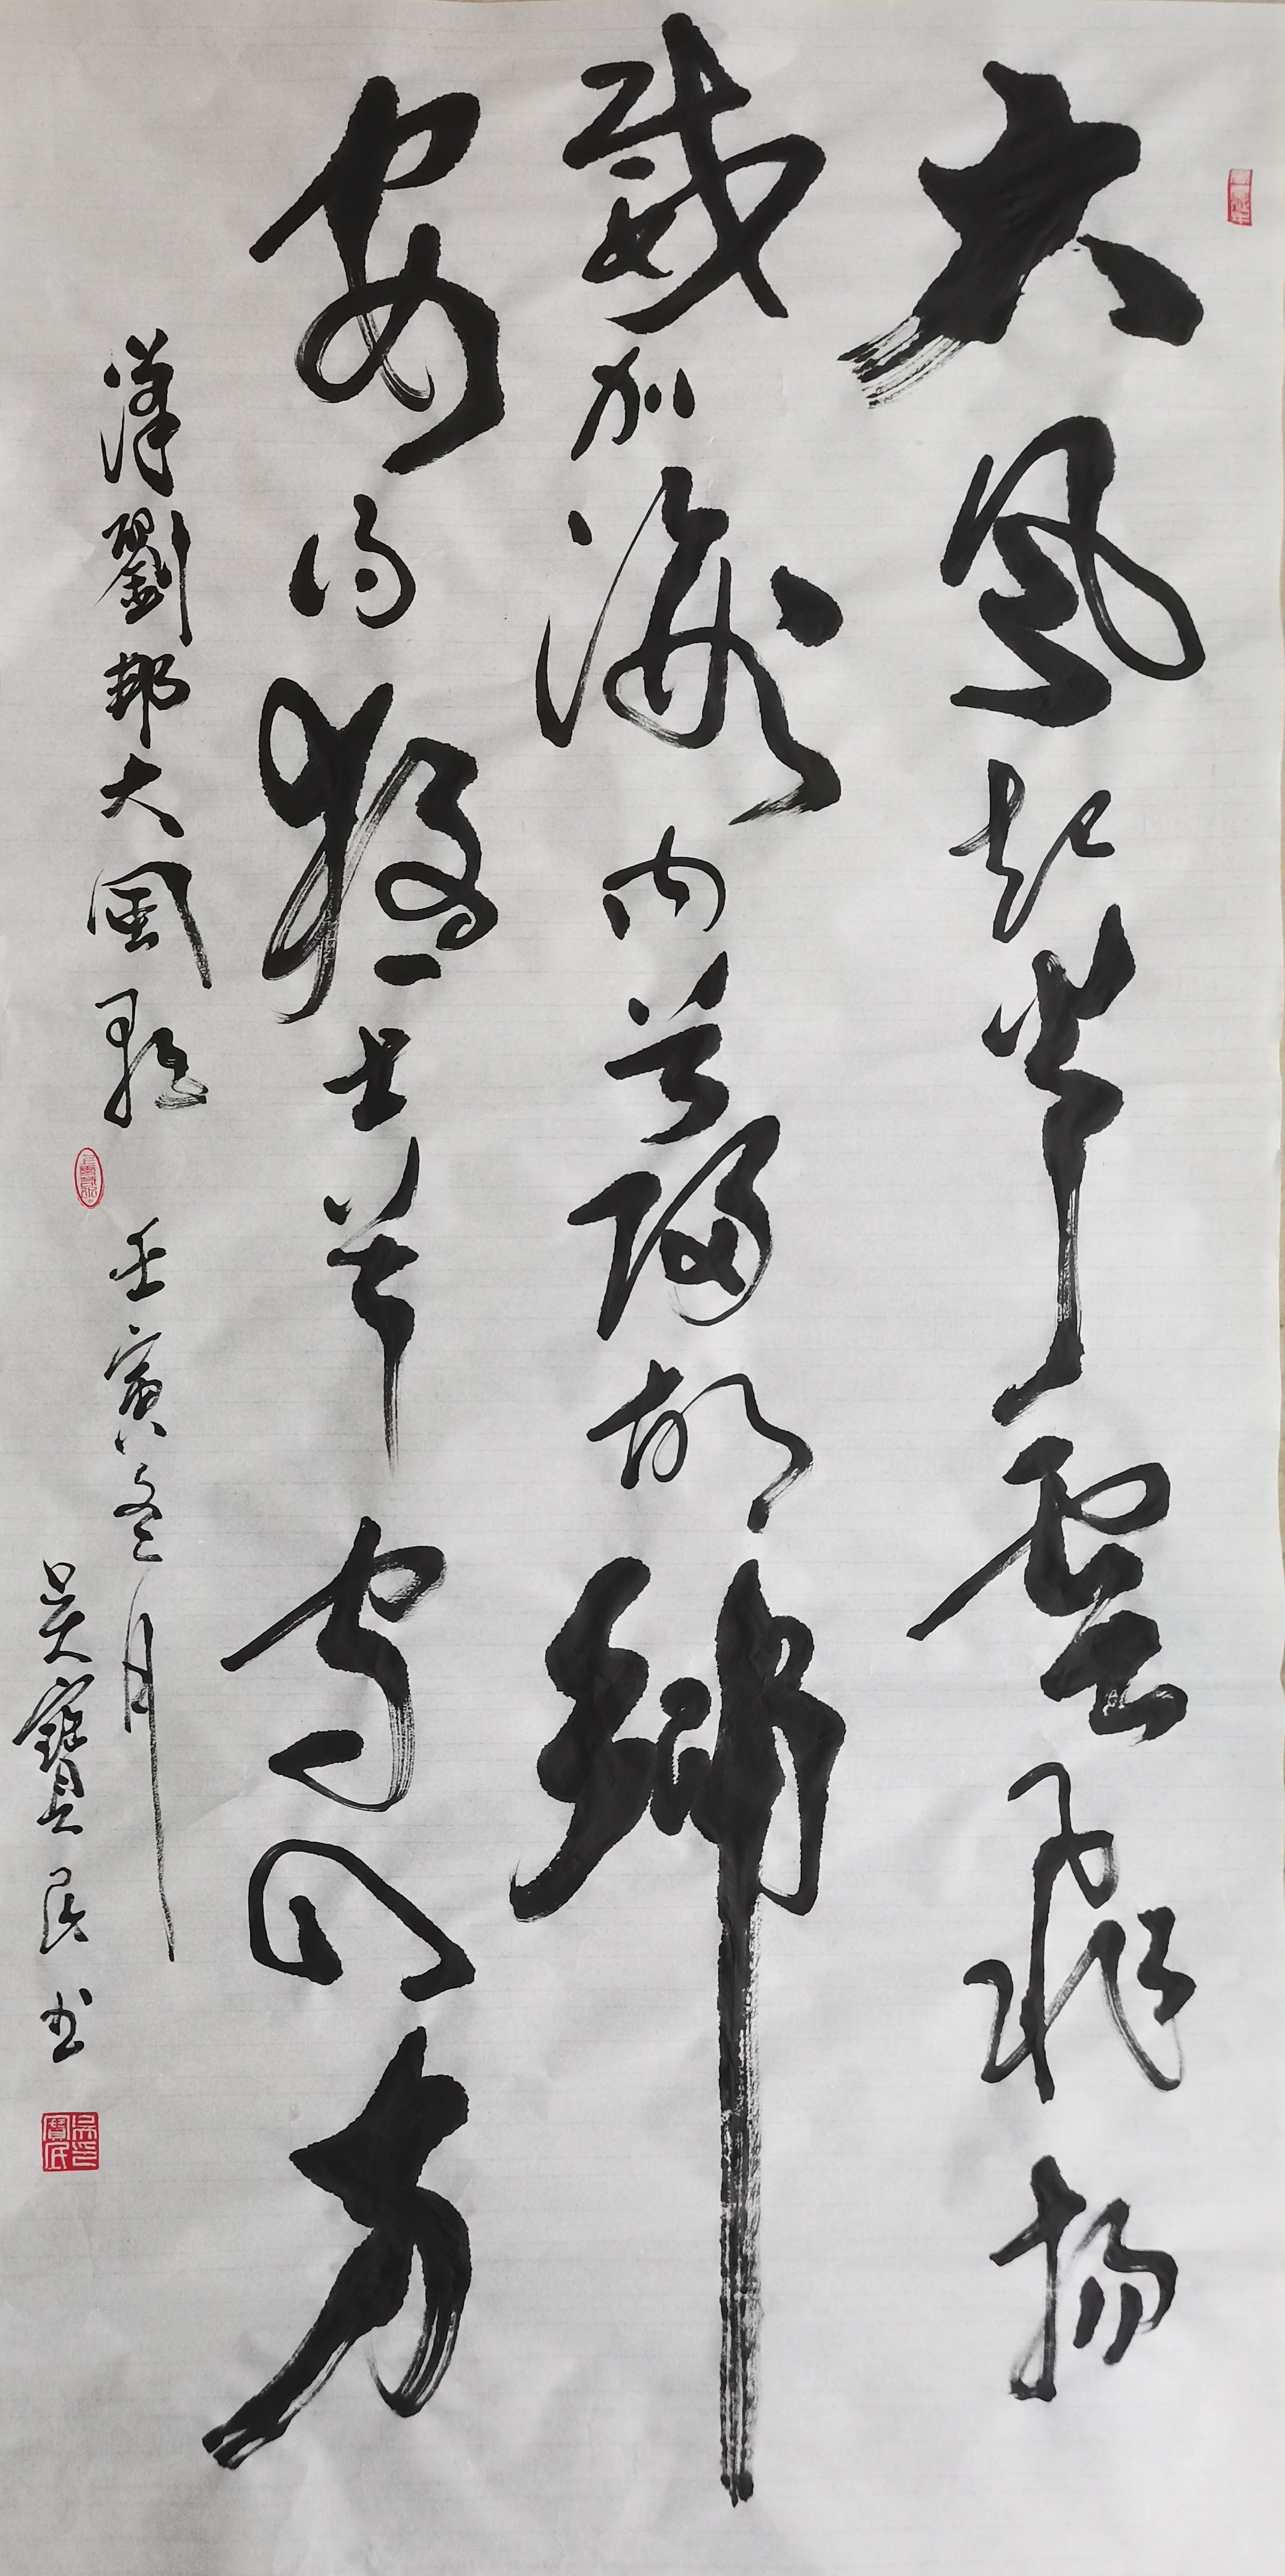 大風起兮雲飛揚
威加海内兮歸故鄉
安得猛士兮守四方
漢劉邦大風歌
壬寅冬月
吳寶民书
吳寶民印